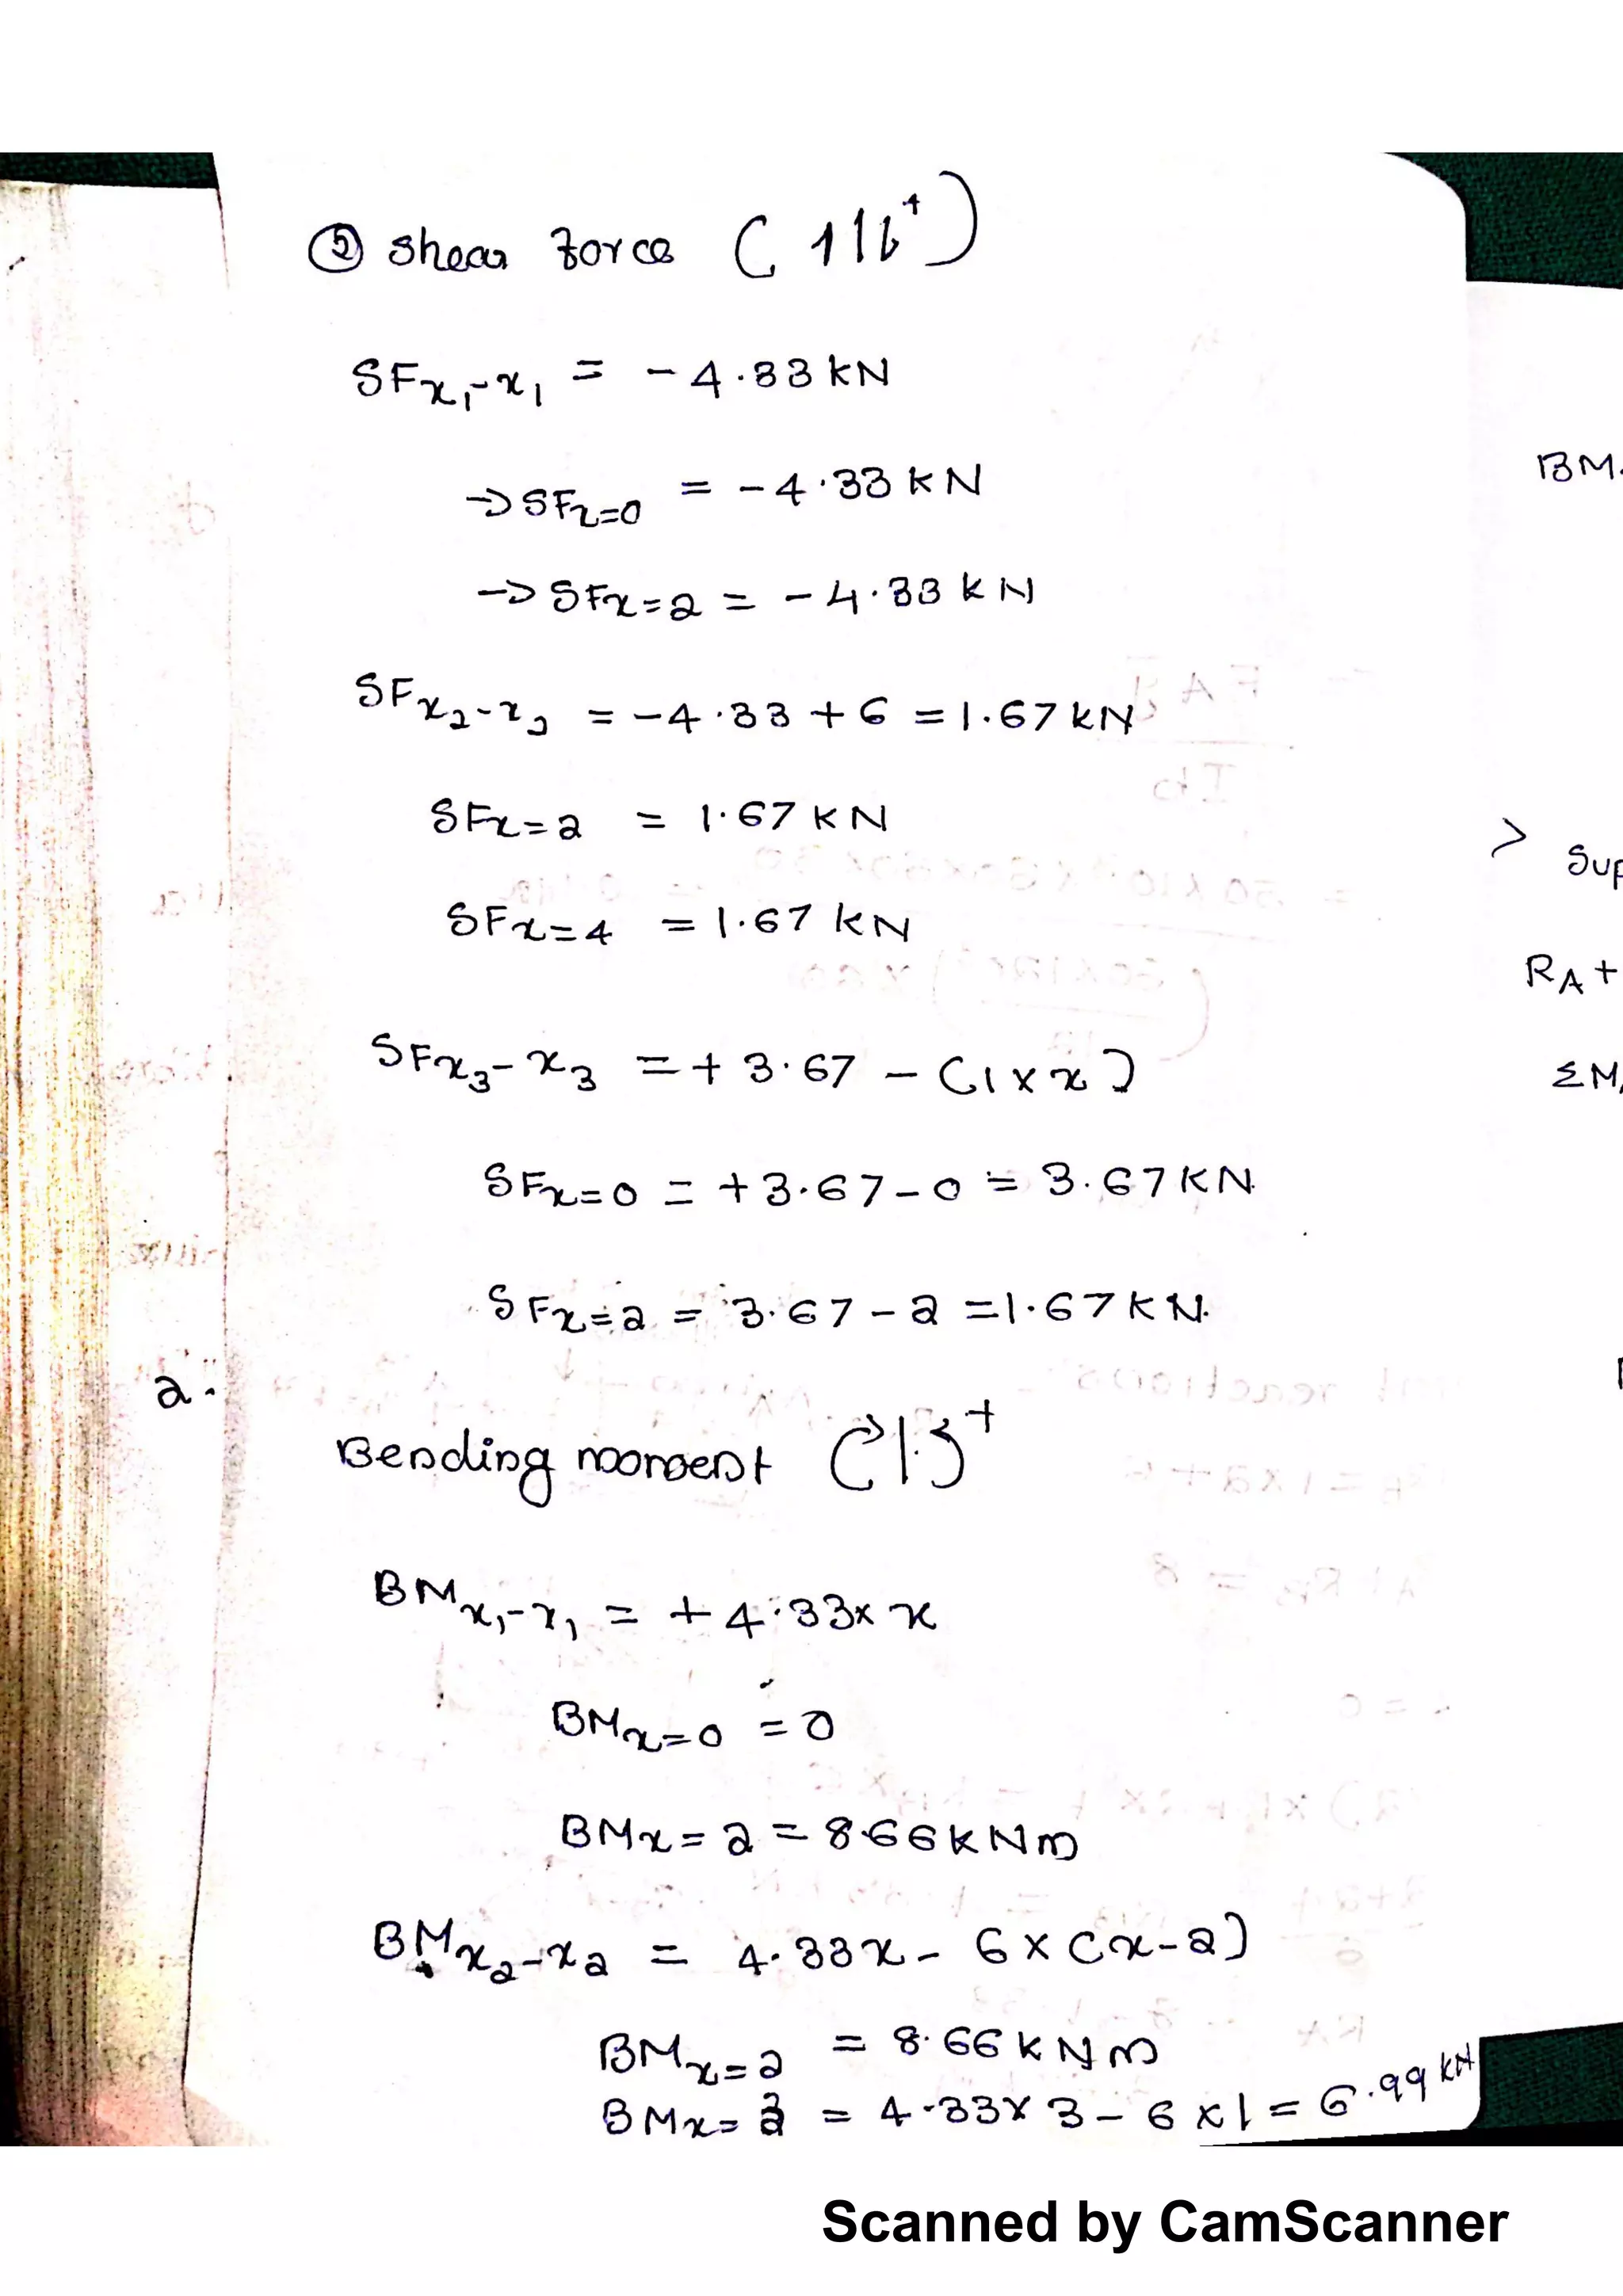 ② Shear force ( 1 | b⁺ )
SFx₁-x₁ = - 4.33 kN
→ SFx=0 = - 4.33 KN
→ SFx=2 = - 4.33 KN
SFx₂-x₂ = -4.33 + 6 = 1.67 kN
SFx=2 = 1.67 KN
SFx=4 = 1.67 kN
SFx₃-x₃ = + 3.67 - (1 x x)
SFx=0 = +3.67-0 = 3.67 KN
SFx=2 = 3.67 - 2 = 1.67 KN.
2.
Bending moment
BMx₁-x₁ = + 4.33 x x
BMx=0 = 0
BMx=2 = 8.66 kNm
BMx₂-x₂ = 4.33x - 6 x (x-2)
BMx=2 = 8.66 kNm
BMx=3 = 4.33 x 3 - 6 x 1 = 6.99 kN
BM
>
Sup
RA +
ΣM
Scanned by CamScanner